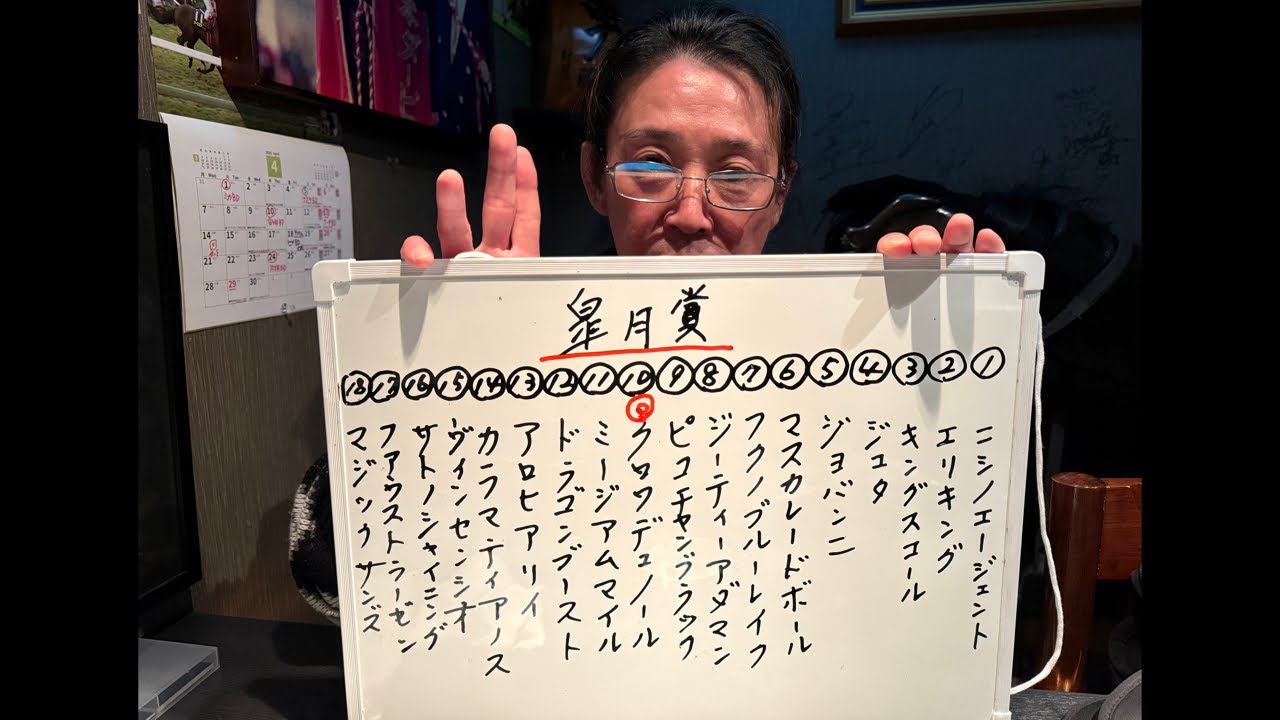 皐月賞
① ニシノエージェント
② エリキング
③ キングスコール
④ ジュタ
⑤ ジョバンニ
⑥ マスカレードボール
⑦ フクノブルーレイク
⑧ ジーティーアダマン
⑨ ピコチャンブラック
⑩ ◎ クロワデュノール
⑪ ミュージアムマイル
⑫ ドラゴンブースト
⑬ アロヒアリイ
⑭ カラマティアノス
⑮ ヴィンセンシオ
⑯ サトノシャイニング
⑰ ファウストラーゼン
⑱ マジックサンズ
4
月 Mon
7 8 9 10 11 12
14 15 16 17 18 19
21 22 23 24 25 26
28 29 30